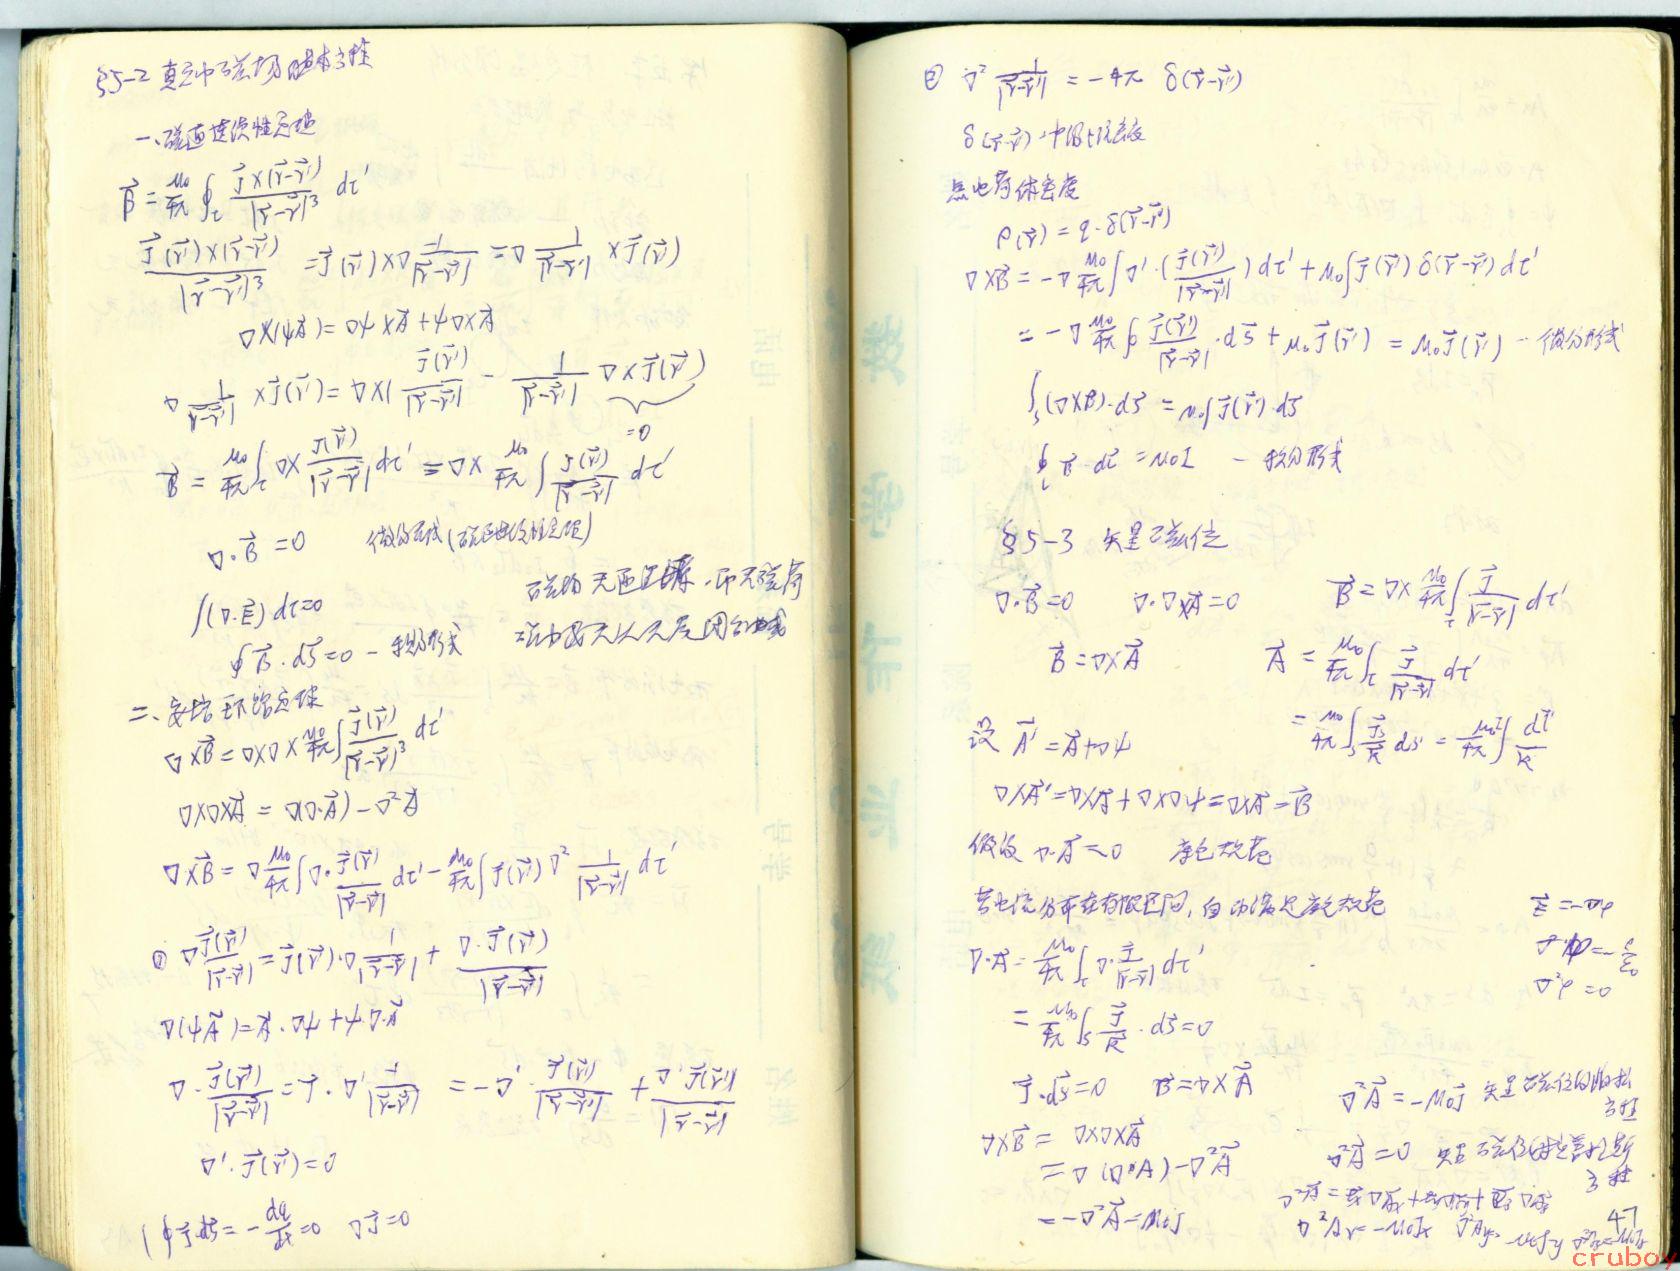 §5-2 真空中磁场的基本方程
一、磁通连续性定理
B⃗ = μ₀/4π ∮_τ J⃗×(r⃗-r⃗')/|r⃗-r⃗'|³ dτ'
J⃗(r⃗')×(r⃗-r⃗')/|r⃗-r⃗'|³ = J⃗(r⃗')×∇ 1/|r⃗-r⃗'| = ∇ 1/|r⃗-r⃗'| × J⃗(r⃗')
∇×(ψA⃗) = ∇ψ×A⃗+ψ∇×A⃗
∇ 1/|r⃗-r⃗'| × J⃗(r⃗') = ∇×( J⃗(r⃗')/|r⃗-r⃗'| - 1/|r⃗-r⃗'| ∇×J⃗(r⃗')
=0
B⃗ = μ₀/4π ∫_τ ∇× J(r⃗')/|r⃗-r⃗'| dτ' = ∇× μ₀/4π ∫ J(r⃗')/|r⃗-r⃗'| dτ'
∇·B⃗ = 0 微分形式(磁通连续性定理)
∫(∇·E⃗)dτ=0
磁场无通量源,即无磁荷
∮B⃗·dS⃗=0 - 积分形式
磁力线无头无尾闭合曲线
二、安培环路定理
∇×B⃗ = ∇×∇× μ₀/4π ∫ J⃗(r⃗')/|r⃗-r⃗'|³ dτ'
∇×∇×A⃗ = ∇(∇·A⃗)-∇²A⃗
∇×B⃗ = ∇ μ₀/4π ∫∇· J⃗(r⃗')/|r⃗-r⃗'| dτ' - μ₀/4π ∫J(r⃗')∇² 1/|r⃗-r⃗'| dτ'
① ∇ J⃗(r⃗')/|r⃗-r⃗'| = J⃗(r⃗')·∇ 1/|r⃗-r⃗'| + ∇·J⃗(r⃗')/|r⃗-r⃗'|
∇(ψA⃗) = A⃗·∇ψ+ψ∇·A⃗
∇· J⃗(r⃗')/|r⃗-r⃗'| = J⃗·∇' 1/|r⃗-r⃗'| = -∇'· J⃗(r⃗')/|r⃗-r⃗'| + ∇'·J⃗(r⃗')/|r⃗-r⃗'|
∇'·J⃗(r⃗') = 0
(∮J⃗·dS⃗ = -dq/dt = 0 ∇J⃗=0
② ∇² 1/|r⃗-r⃗'| = -4π δ(r⃗-r⃗')
δ(r⃗-r⃗')
点电荷体密度
ρ(r⃗) = q·δ(r⃗-r⃗')
∇×B⃗ = -∇ μ₀/4π ∫∇'·( J⃗(r⃗')/|r⃗-r⃗'| )dτ' + μ₀∫J⃗(r⃗')δ(r⃗-r⃗')dτ'
= -∇ μ₀/4π ∮ J⃗(r⃗')/|r⃗-r⃗'| ·dS⃗ + μ₀J⃗(r⃗') = μ₀J⃗(r⃗') - 微分形式
∫_S(∇×B)·dS⃗ = μ₀∫J⃗(r⃗')·dS⃗
∮_l B⃗·dl⃗ = μ₀I - 积分形式
§5-3 矢量磁位
∇·B⃗=0 ∇·∇×A⃗=0 B⃗=∇× μ₀/4π ∫_τ J⃗/|r⃗-r⃗'| dτ'
B⃗=∇×A⃗ A⃗ = μ₀/4π ∫_τ J⃗/|r⃗-r⃗'| dτ'
= μ₀/4π ∫_S J⃗s/R ds' = μ₀I/4π ∫ dl⃗'/R
设 A⃗'=A⃗+∇ψ
∇×A⃗'=∇×A⃗+∇×∇ψ=∇×A⃗=B⃗
假设 ∇·A⃗=0 库仑规范
若电流分布在有限区间,自动满足库仑规范
E⃗=-∇φ
∇²φ=-ρ/ε₀
∇²φ=0
∇·A⃗ = μ₀/4π ∫_τ ∇· J⃗/|r⃗-r⃗'| dτ'
= μ₀/4π ∫_S J⃗/R ·dS⃗=0
J⃗·dS⃗=0 B⃗=∇×A⃗
∇²A⃗=-μ₀J⃗ 矢量磁位的泊松方程
∇×B⃗ = ∇×∇×A⃗
= ∇(∇·A)-∇²A⃗
= -∇²A⃗=μ₀J
∇²A⃗=0 矢量磁位的拉普拉斯方程
∇²Ax=-μ₀Jx ∇²Ay=-μ₀Jy ∇²Az=-μ₀Jz
47
cruboy